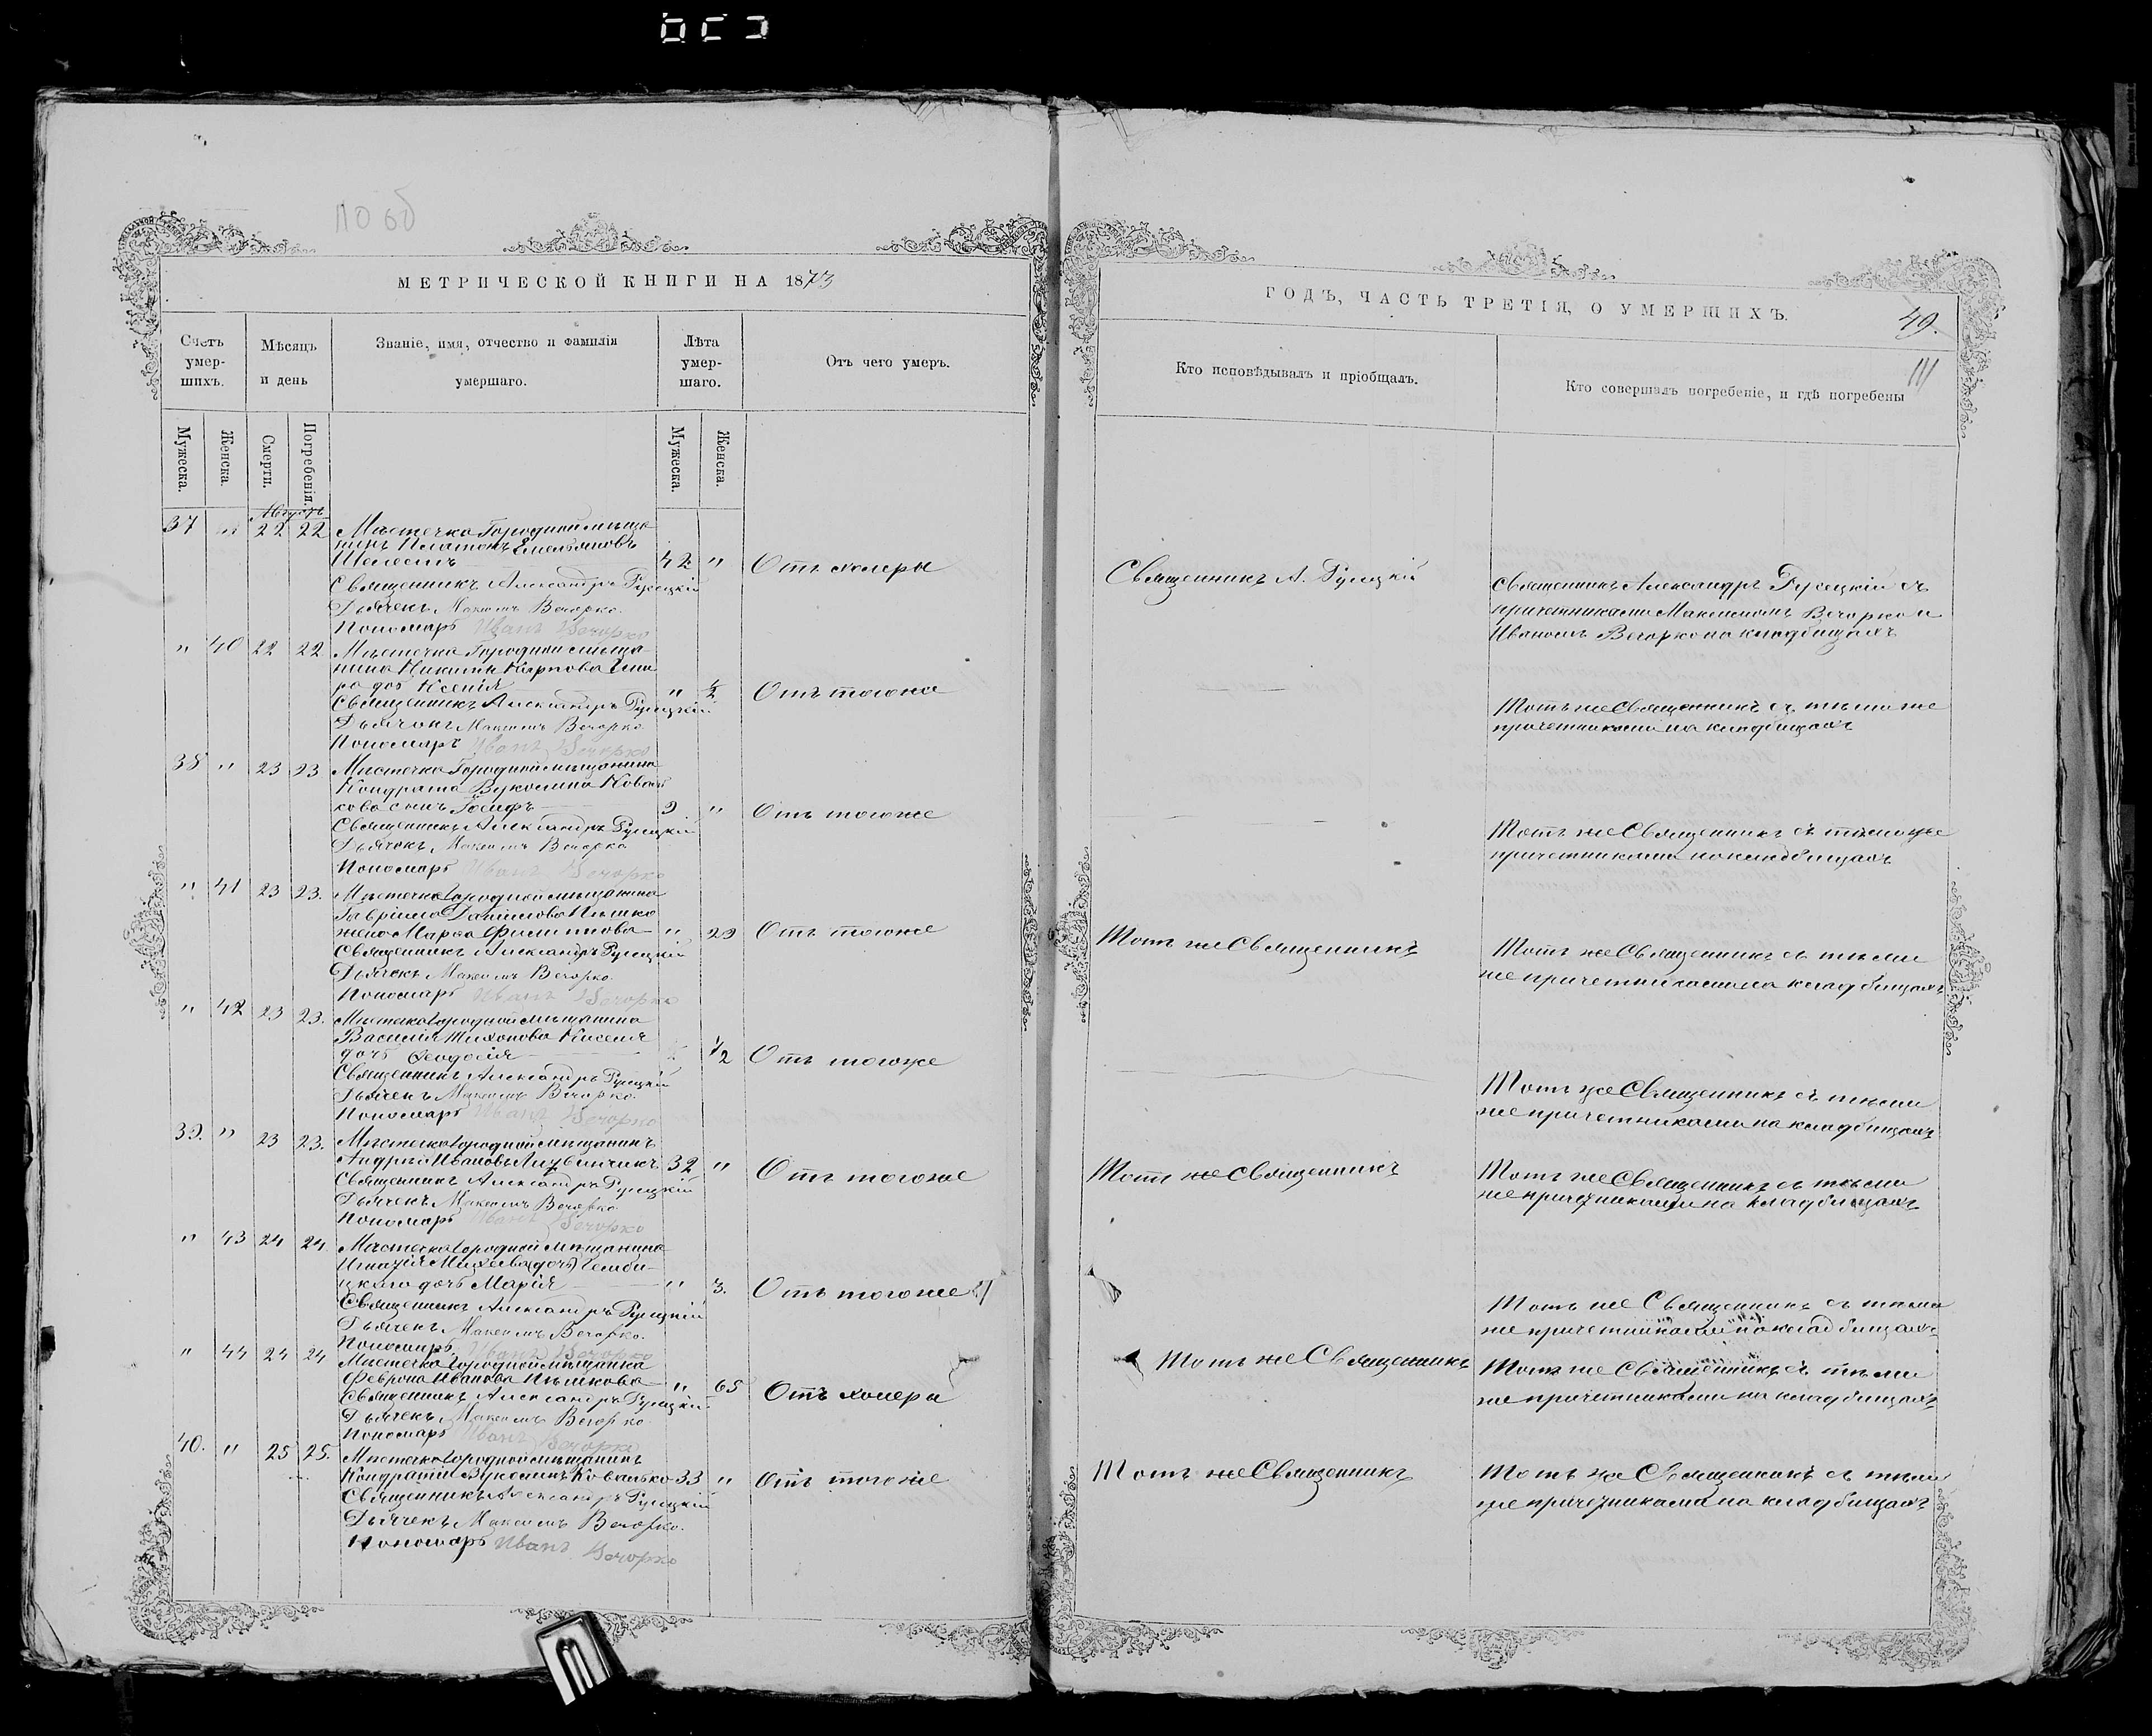 110 об
МЕТРИЧЕСКОЙ КНИГИ НА 1873
ГОДЪ, ЧАСТЬ ТРЕТІЯ, О УМЕРШИХЪ.
49.
111
Счетъ умер-шихъ.
Мѣсяцъ и день
Званіе, имя, отчество и фамилія умершаго.
Лѣта умер-шаго.
Отъ чего умеръ.
Кто исповѣдывалъ и пріобщалъ.
Кто совершалъ погребеніе, и гдѣ погребены
Мужеска. Женска. Смерти. Погребенія. Мужеска. Женска.
Августъ
37 " 22 22 Мѣстечка Городной мѣща-
нинъ Платонъ Емельяновъ
42 " Отъ холеры
Священникъ А.
Священникъ Александръ
Дьячекъ Максимъ Вечорко.
Пономарь Иванъ Вечорко
Священникъ Александръ съ
причетниками Максимомъ Вечорко и
Иваномъ Вечорко на кладбищахъ
" 40 22 22 Мѣстечка Городной мѣща-
нина Никиты Карпова
дочь Ксенія " ½ Отъ тогоже
Священникъ Александръ
Дьячокъ Максимъ Вечорко
Пономарь Иванъ Вечорко
Тотъ же Священникъ съ тѣми же
причетниками на кладбищахъ
38 " 23 23 Мѣстечка Городной мѣщанина
Кондрата Вуколина
сынъ Іосифъ 9 " Отъ тогоже
Священникъ Александръ
Дьячокъ Максимъ Вечорко
Пономарь Иванъ Вечорко
Тотъ же Священникъ съ тѣми же
причетниками на кладбищахъ
" 41 23 23. Мѣстечка Городной мѣщанина
Гавріила Даніилова Пѣшко
жена Марѳа Филиппова " 29 Отъ тогоже
Тотъ же Священникъ
Священникъ Александръ
Дьячекъ Максимъ Вечорко.
Пономарь Иванъ Вечорко
Тотъ же Священникъ съ тѣми
же причетниками на кладбищахъ
" 42 23 23. Мѣстечка Городной мѣщанина
Василія Тихонова
дочь Ѳеодосія ½ Отъ тогоже
Священникъ Александръ
Дьячекъ Максимъ Вечорко.
Пономарь Иванъ Вечорко
Тотъ же Священникъ съ тѣми
же причетниками на кладбищахъ
39. " 23 23. Мѣстечка Городной мѣщанинъ
Андрей Ивановъ 32 " Отъ тогоже
Тотъ же Священникъ
Священникъ Александръ
Дьячекъ Максимъ Вечорко.
Пономарь Иванъ Вечорко
Тотъ же Священникъ съ тѣми
же причетниками на кладбищахъ
" 43 24 24. Мѣстечка Городной мѣщанина
Игнатія
дочь Марія " 3. Отъ тогоже
Священникъ Александръ
Дьячекъ Максимъ Вечорко.
Пономарь Иванъ Вечорко
Тотъ же Священникъ съ тѣми
же причетниками на кладбищахъ
" 44 24 24 Мѣстечка Городной мѣщанка
Феврона Иванова Пѣшкова " 65 Отъ холеры
Тотъ же Священникъ
Священникъ Александръ
Дьячекъ Максимъ Вечорко.
Пономарь Иванъ Вечорко
Тотъ же Священникъ съ тѣми
же причетниками на кладбищахъ
40. " 25 25. Мѣстечка Городной мѣщанинъ
Кондратій Вуколинъ Ковалько 33 " Отъ тогоже
Тотъ же Священникъ
Священникъ Александръ
Дьячекъ Максимъ Вечорко.
Пономарь Иванъ Вечорко
Тотъ же Священникъ съ тѣми
же причетниками на кладбищахъ